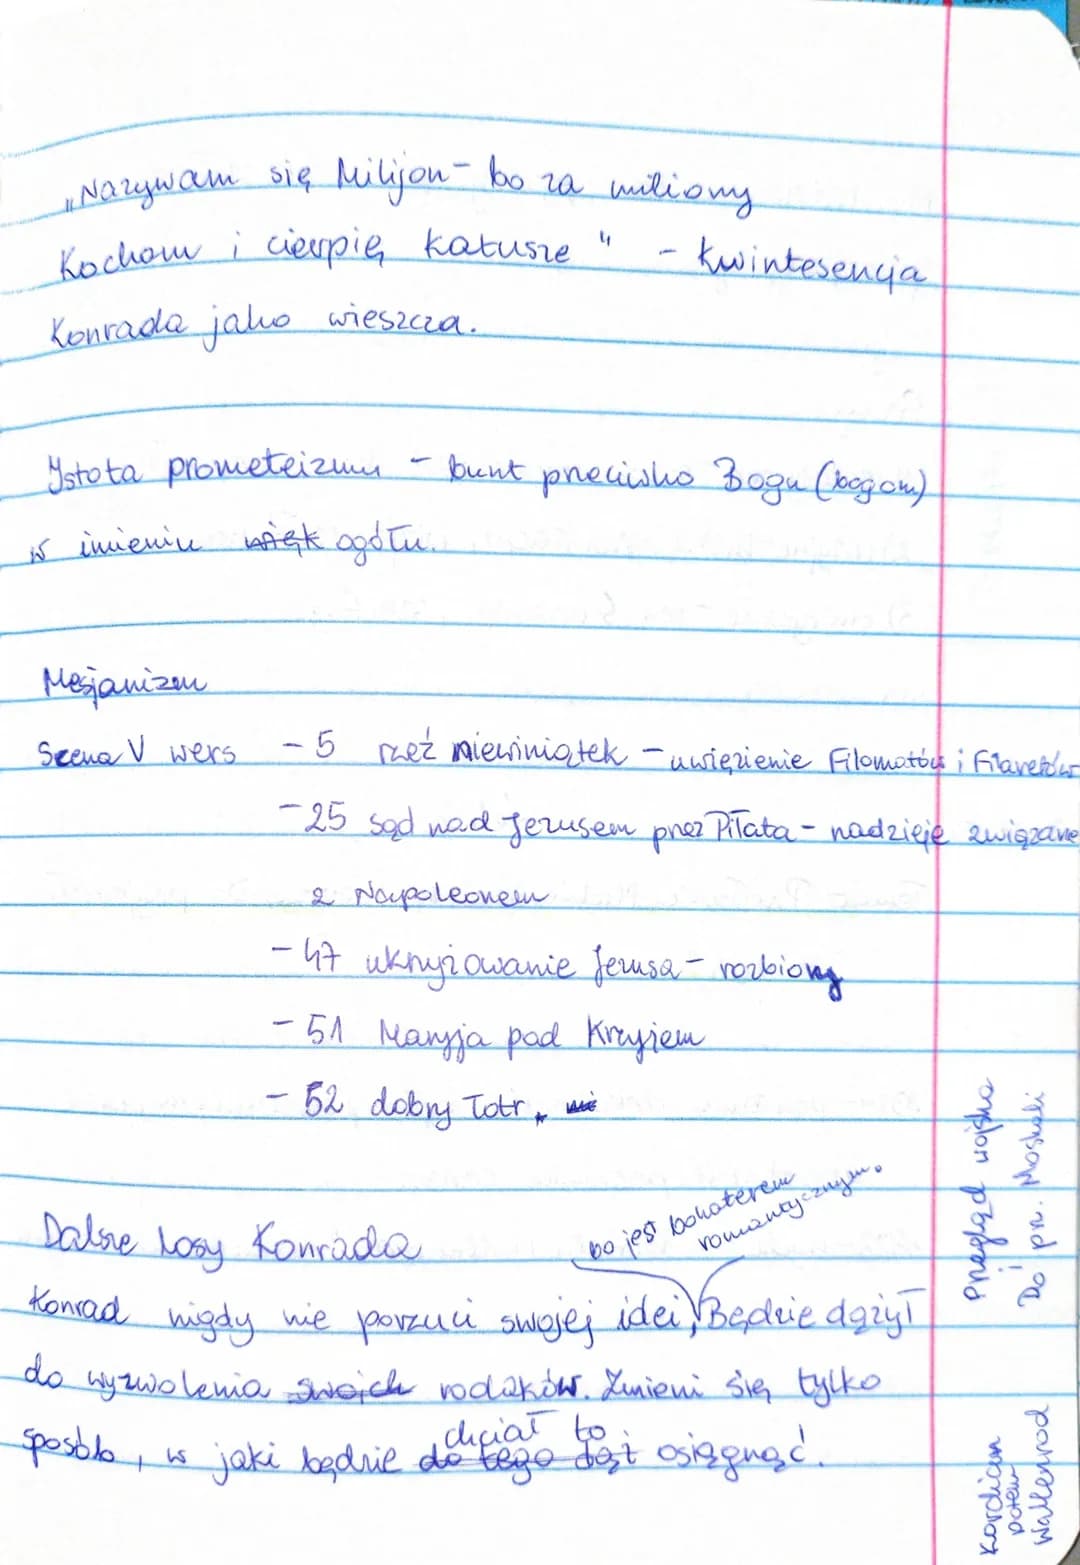 „Nazywam się Milijon – bo za miliony
Kocham i cierpię katusze" – kwintesencja
Konrada jako wieszcza.
Istota prometeizmu – bunt przeciwko Bogu (bogom)
w imieniu więk ogółu.
Mesjanizm
Scena V wers – 5 rzeź niewiniątek – uwięzienie Filomatów i Filaretów
– 25 sąd nad Jezusem przez Piłata – nadzieje związane
z Napoleonem
– 47 ukrzyżowanie Jezusa – rozbiory
– 51 Maryja pod Krzyżem
– 52 dobry Łotr,
Dalsze losy Konrada
bo jest bohaterem
romantycznym.
Konrad nigdy nie porzuci swojej idei, Będzie dążył
do wyzwolenia swoich rodaków. Zmieni się tylko
chciał to
sposób, w jaki będzie do tego dąż osiągnąć.
Przegląd wojska
Do prz. Moskali
Kordian
potem
Wallenrod